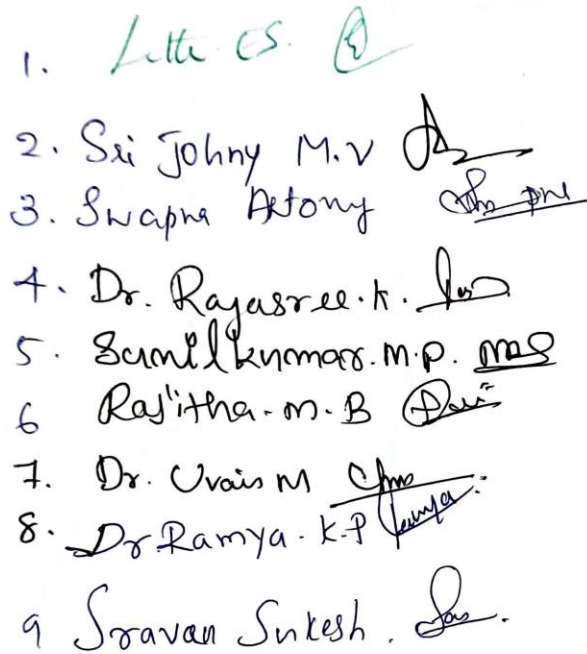 1. Litty CS.
2. Sri Johny M.V
3. Swapna Antony
4. Dr. Rajasree.k.
5. Sunilkumar.m.p.
6 Rajitha.m.B
7. Dr. Uvais M
8. Dr Ramya. K.P
9 Sravan Sukesh.